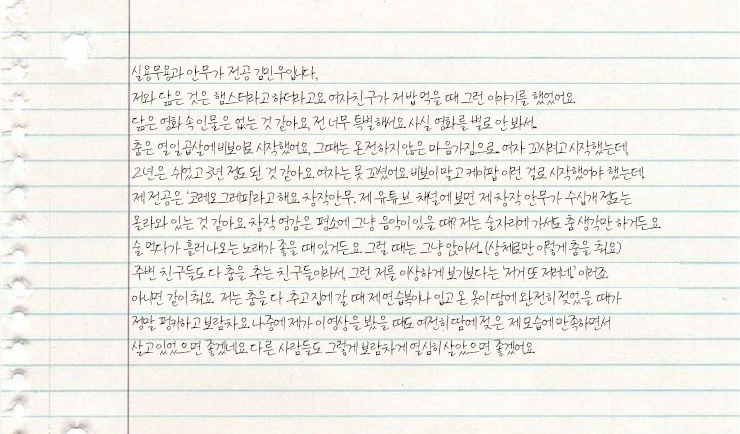 실용무용과 안무가 전공 김민우입니다,
저와 닮은 것은 햄스터라고 하더라고요. 여자친구가 저 밥 먹을 때 그런 이야기를 했었어요.
닮은 영화 속 인물은 없는 것 같아요. 전 너무 특별해서요. 사실 영화를 별로 안 봐서..
춤은 열일곱살에 비보이로 시작했어요. 그때는 온전하지 않은 마음가짐으로.. 여자 꼬시려고 시작했는데,
2년은 쉬었고 3년 정도 된 것 같아요. 여자는 못 꼬셨어요. 비보이 말고 케이팝 이런 걸로 시작했어야 했는데,
제 전공은 '코레오그래피'라고 해요. 창작안무. 제 유튜브 채널에 보면 제 창작 안무가 수십개 정도는
올라와 있는 것 같아요. 창작 영감은 평소에 그냥 음악이 있을 때? 저는 술자리에 가서도 춤 생각만 하거든요.
술 먹다가 흘러나오는 노래가 좋을 때 있거든요. 그럴 때는 그냥 앉아서.. (상체로만 이렇게 춤을 춰요)
주변 친구들도 다 춤을 추는 친구들이라서, 그런 저를 이상하게 보기보다는 '저거 또 저러네' 이러죠.
아니면 같이 춰요. 저는 춤을 다 추고 집에 갈 때 제 연습복이나 입고 온 옷이 땀에 완전히 젖었을 때가
정말 뿌듯하고 보람차요. 나중에 제가 이 영상을 봤을 때도 여전히 땀에 젖은 제 모습에 만족하면서
살고 있었으면 좋겠네요. 다른 사람들도 그렇게 보람차게 열심히 살았으면 좋겠어요.